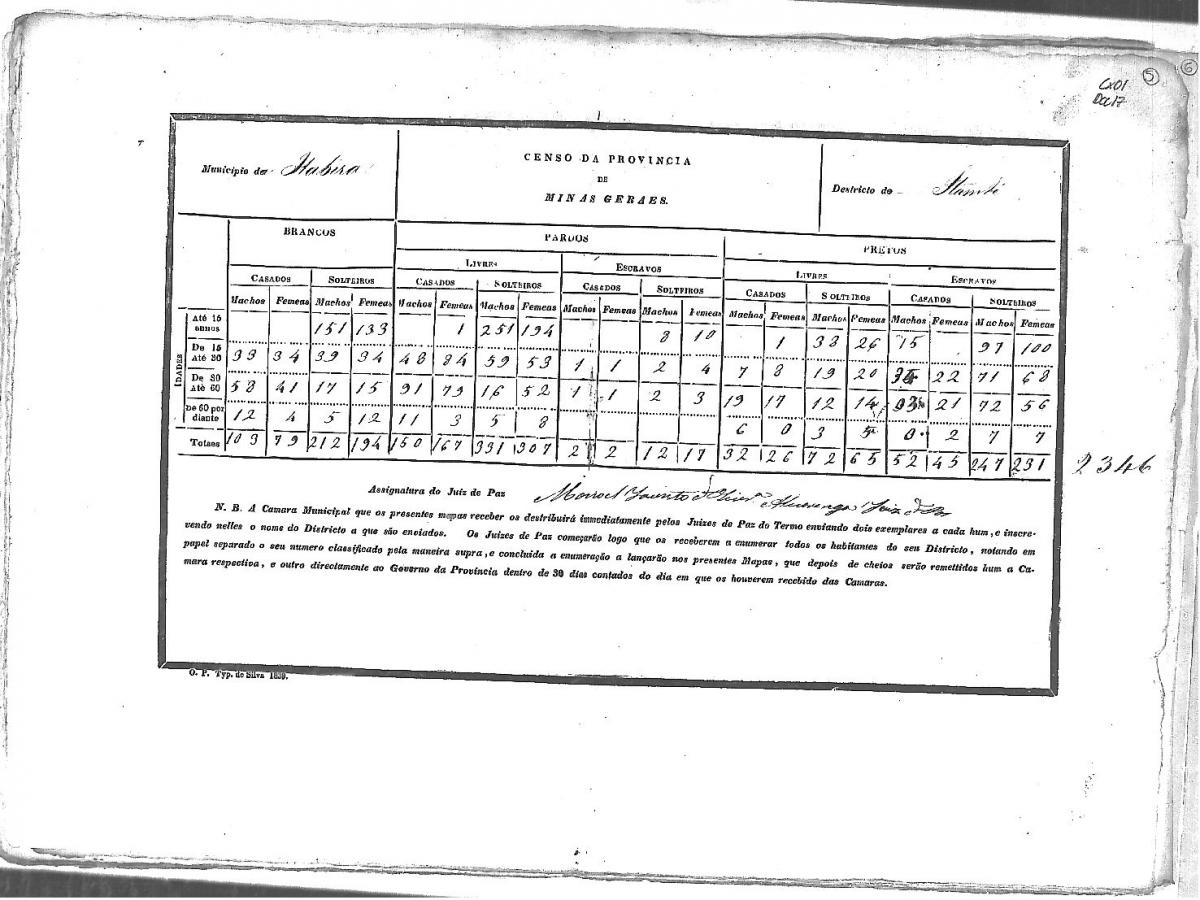 5 6
Cx01
Doc17
Municipio de Itabira
CENSO DA PROVINCIA
DE
MINAS GERAES.
Destricto de
BRANCOS PARDOS PRETOS
LIVRES ESCRAVOS LIVRES ESCRAVOS
CASADOS SOLTEIROS CASADOS SOLTEIROS CASADOS SOLTEIROS CASADOS SOLTEIROS CASADOS SOLTEIROS
Machos Femeas Machos Femeas Machos Femeas Machos Femeas Machos Femeas Machos Femeas Machos Femeas Machos Femeas Machos Femeas Machos Femeas
IDADES
Até 15 annos 151 133 1 251 194 8 10 1 38 26 15 97 100
De 15 Até 30 33 34 39 34 48 84 59 53 1 1 2 4 7 8 19 20 22 71 68
De 30 Até 60 58 41 17 15 91 79 16 52 1 1 2 3 19 17 12 14 21 72 56
De 60 por diante 12 4 5 12 11 3 5 8 6 0 3 5 0 2 7 7
Totaes 103 79 212 194 150 167 331 307 2 2 12 17 32 26 72 65 52 45 247 231
2346
Assignatura do Juiz de Paz Manoel Jacinto Alvarenga Juiz
N. B. A Camara Municipal que os presentes mapas receber os destribuirá immediatamente pelos Juizes de Paz do Termo enviando dois exemplares a cada hum, e inscre-
vendo nelles o nome do Districto a que são enviados. Os Juizes de Paz começarão logo que os receberem a enumerar todos os habitantes do seu Districto, notando em
papel separado o seu numero classificado pela maneira supra, e concluida a enumeração a lançarão nos presentes Mapas, que depois de cheios serão remettidos hum a Ca-
mara respectiva, e outro directamente ao Governo da Provincia dentro de 30 dias contados do dia em que os houverem recebido das Camaras.
O. P. Typ. de Silva 1839.